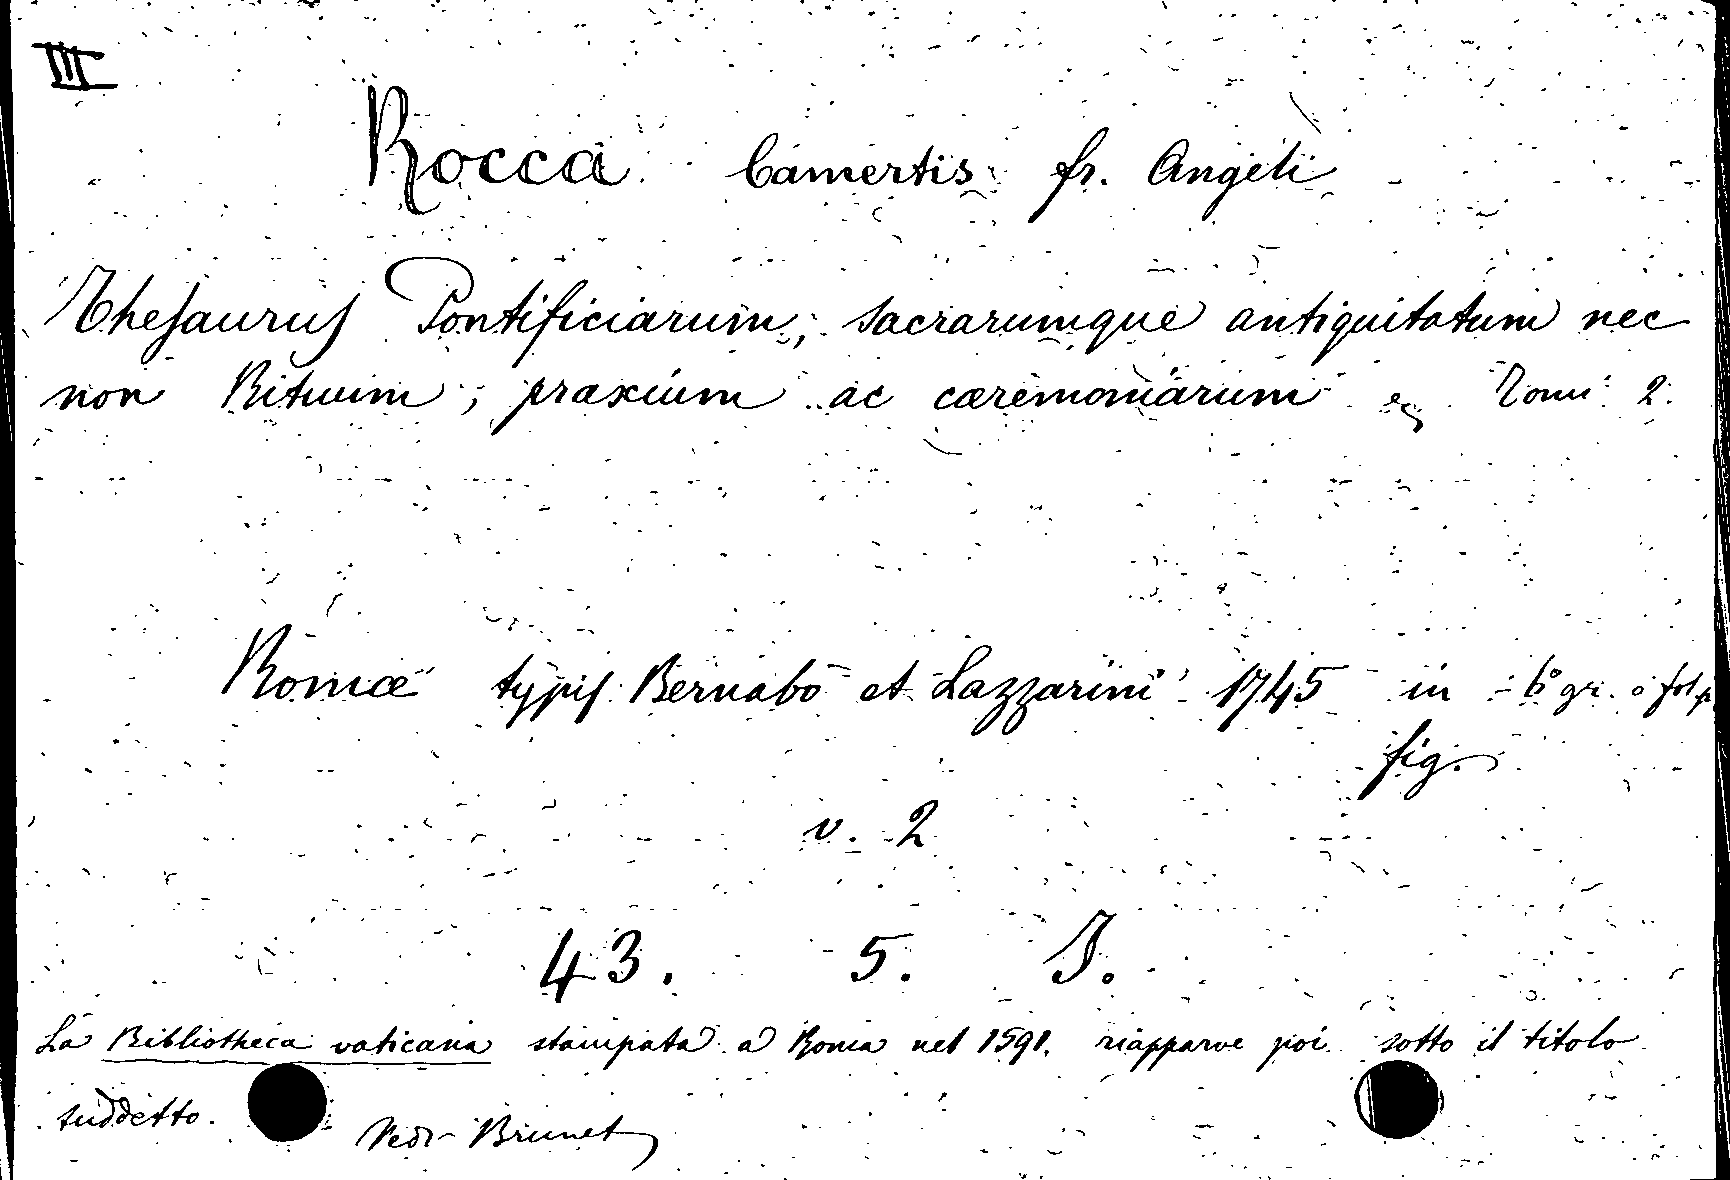 III
Rocca Camertis fr. Angeli
Thesaurus Pontificiarum, sacrarumque antiquitatum nec
non Rituum, praxium ac cæremoniarum Tomi 2.
Romæ typis Bernabò et Lazzarini 1745 in gr. o fol. p.
fig.
v. 2
43. 5. I.
La Bibliotheca vaticana stampata a Roma nel 1591. riapparve poi sotto il titolo
suddetto. Vedi Brunet